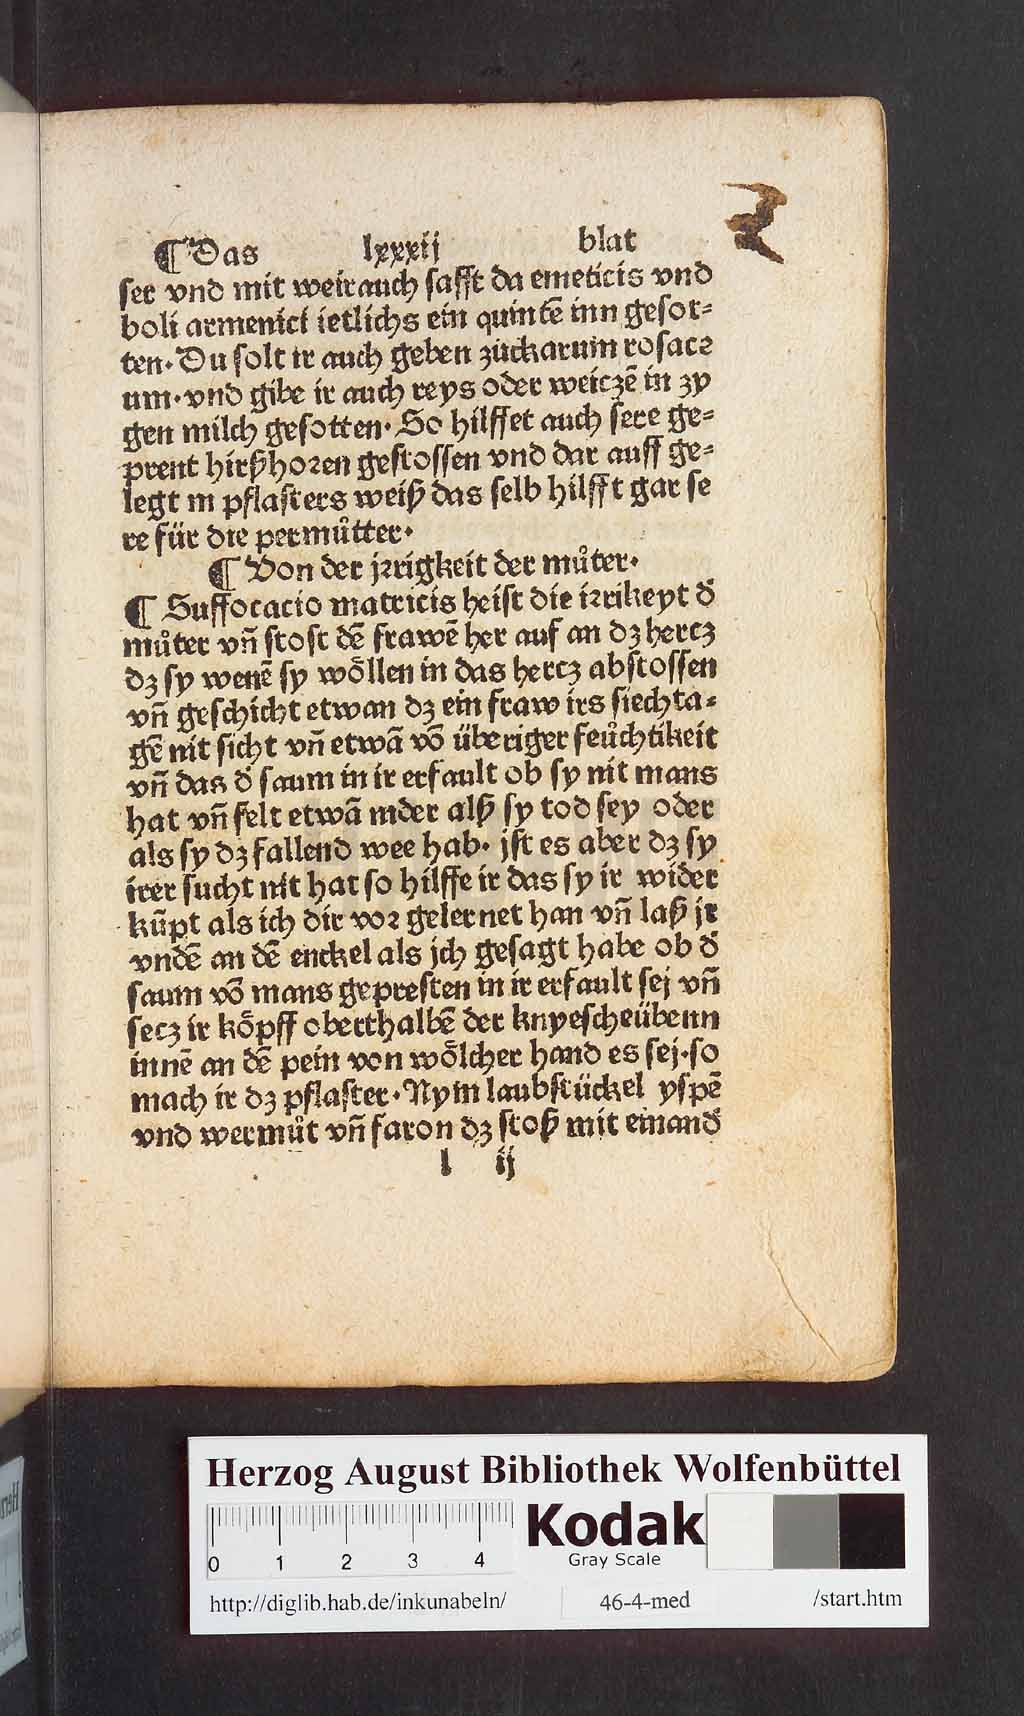 ¶ Das lxxxij blat
ser vnd mit weirauch safft da emeticis vnd
boli armenici ietlichs ein quintē inn gesor⸗
ten. Du solt ir auch geben zuckarum rosacꝛ
um. vnd gibe ir auch reys oder weiczē in zy
gen milch gesotten. So hilffet auch sere ge⸗
prent hirßhoꝛen gestossen vnd dar auff ge⸗
legt in pflasters weiß das selb hilfft gar se
re für die permůtter.
¶ Von der jꝛrigkeit der můter.
¶ Suffocacio matricis heist die iꝛrikeyt d̕
můter vñ stost dē frawē her auf an dz hercz
dz sy wenē sy woͤllen in das hercz abstossen
vñ geschicht etwan dz ein fraw irs siechta⸗
gē nit sicht vñ etwā vō überiger feůchtikeit
vñ das d̕ saum in ir erfault ob sy nit mans
hat vñ felt etwā nider alß sy tod sey oder
als sy dz fallend wee hab. jst es aber dz sy
irer sucht nit hat so hilffe ir das sy ir wider
kūpt als ich dir voꝛ gelernet han vñ laß jr
vndē an dē enckel als jch gesagt habe ob d̕
saum vō mans gepresten in ir erfault sej vñ
secz ir koͤpff oberthalbē der knyescheübenn
innē an dē pein von woͤlcher hand es sej. so
mach ir dz pflaster. Nym laubstückel yspē
vnd wermůt vñ faron dz stoß mit einand̕
l ij
Herzog August Bibliothek Wolfenbüttel
0 1 2 3 4
Kodak
Gray Scale
http://diglib.hab.de/inkunabeln/ 46-4-med /start.htm